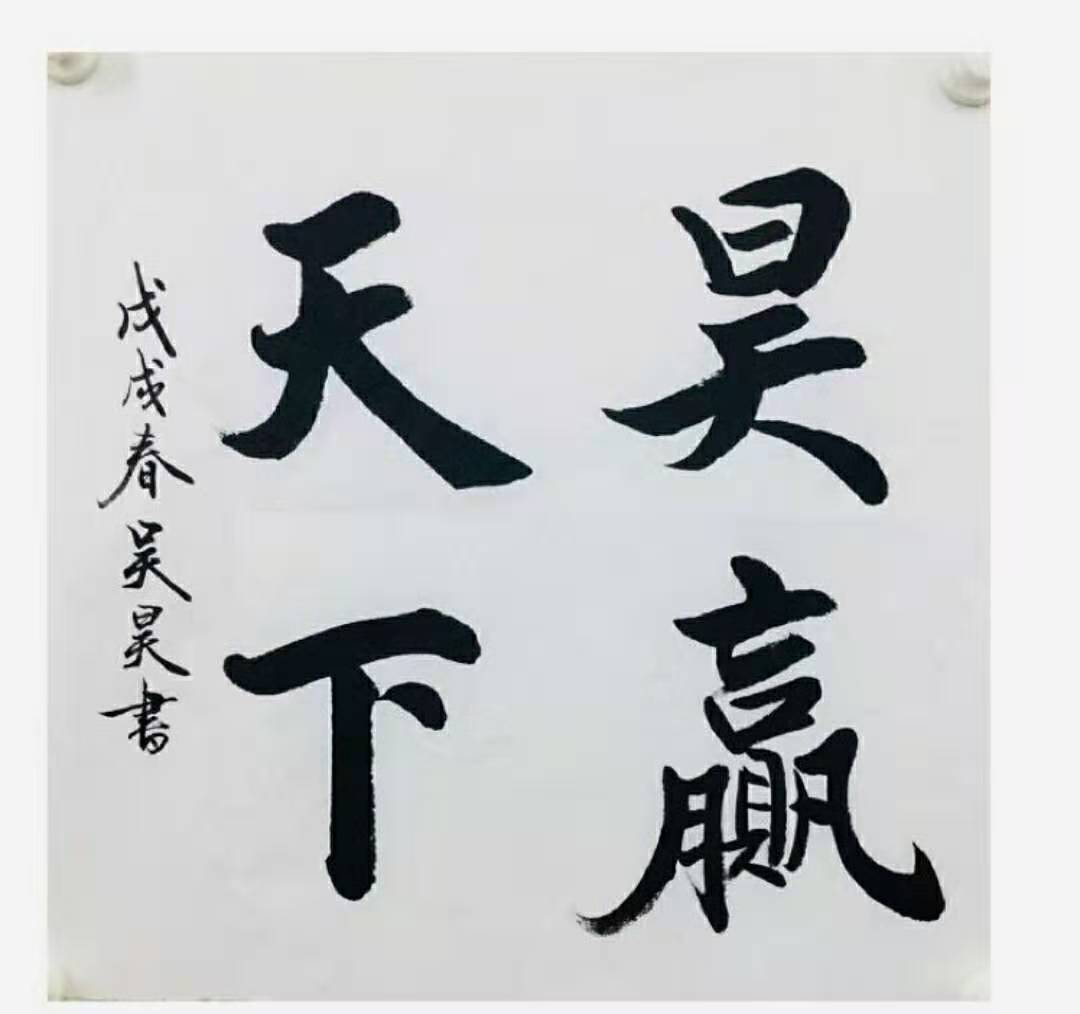 昊赢
天下
戊戌春吴昊書